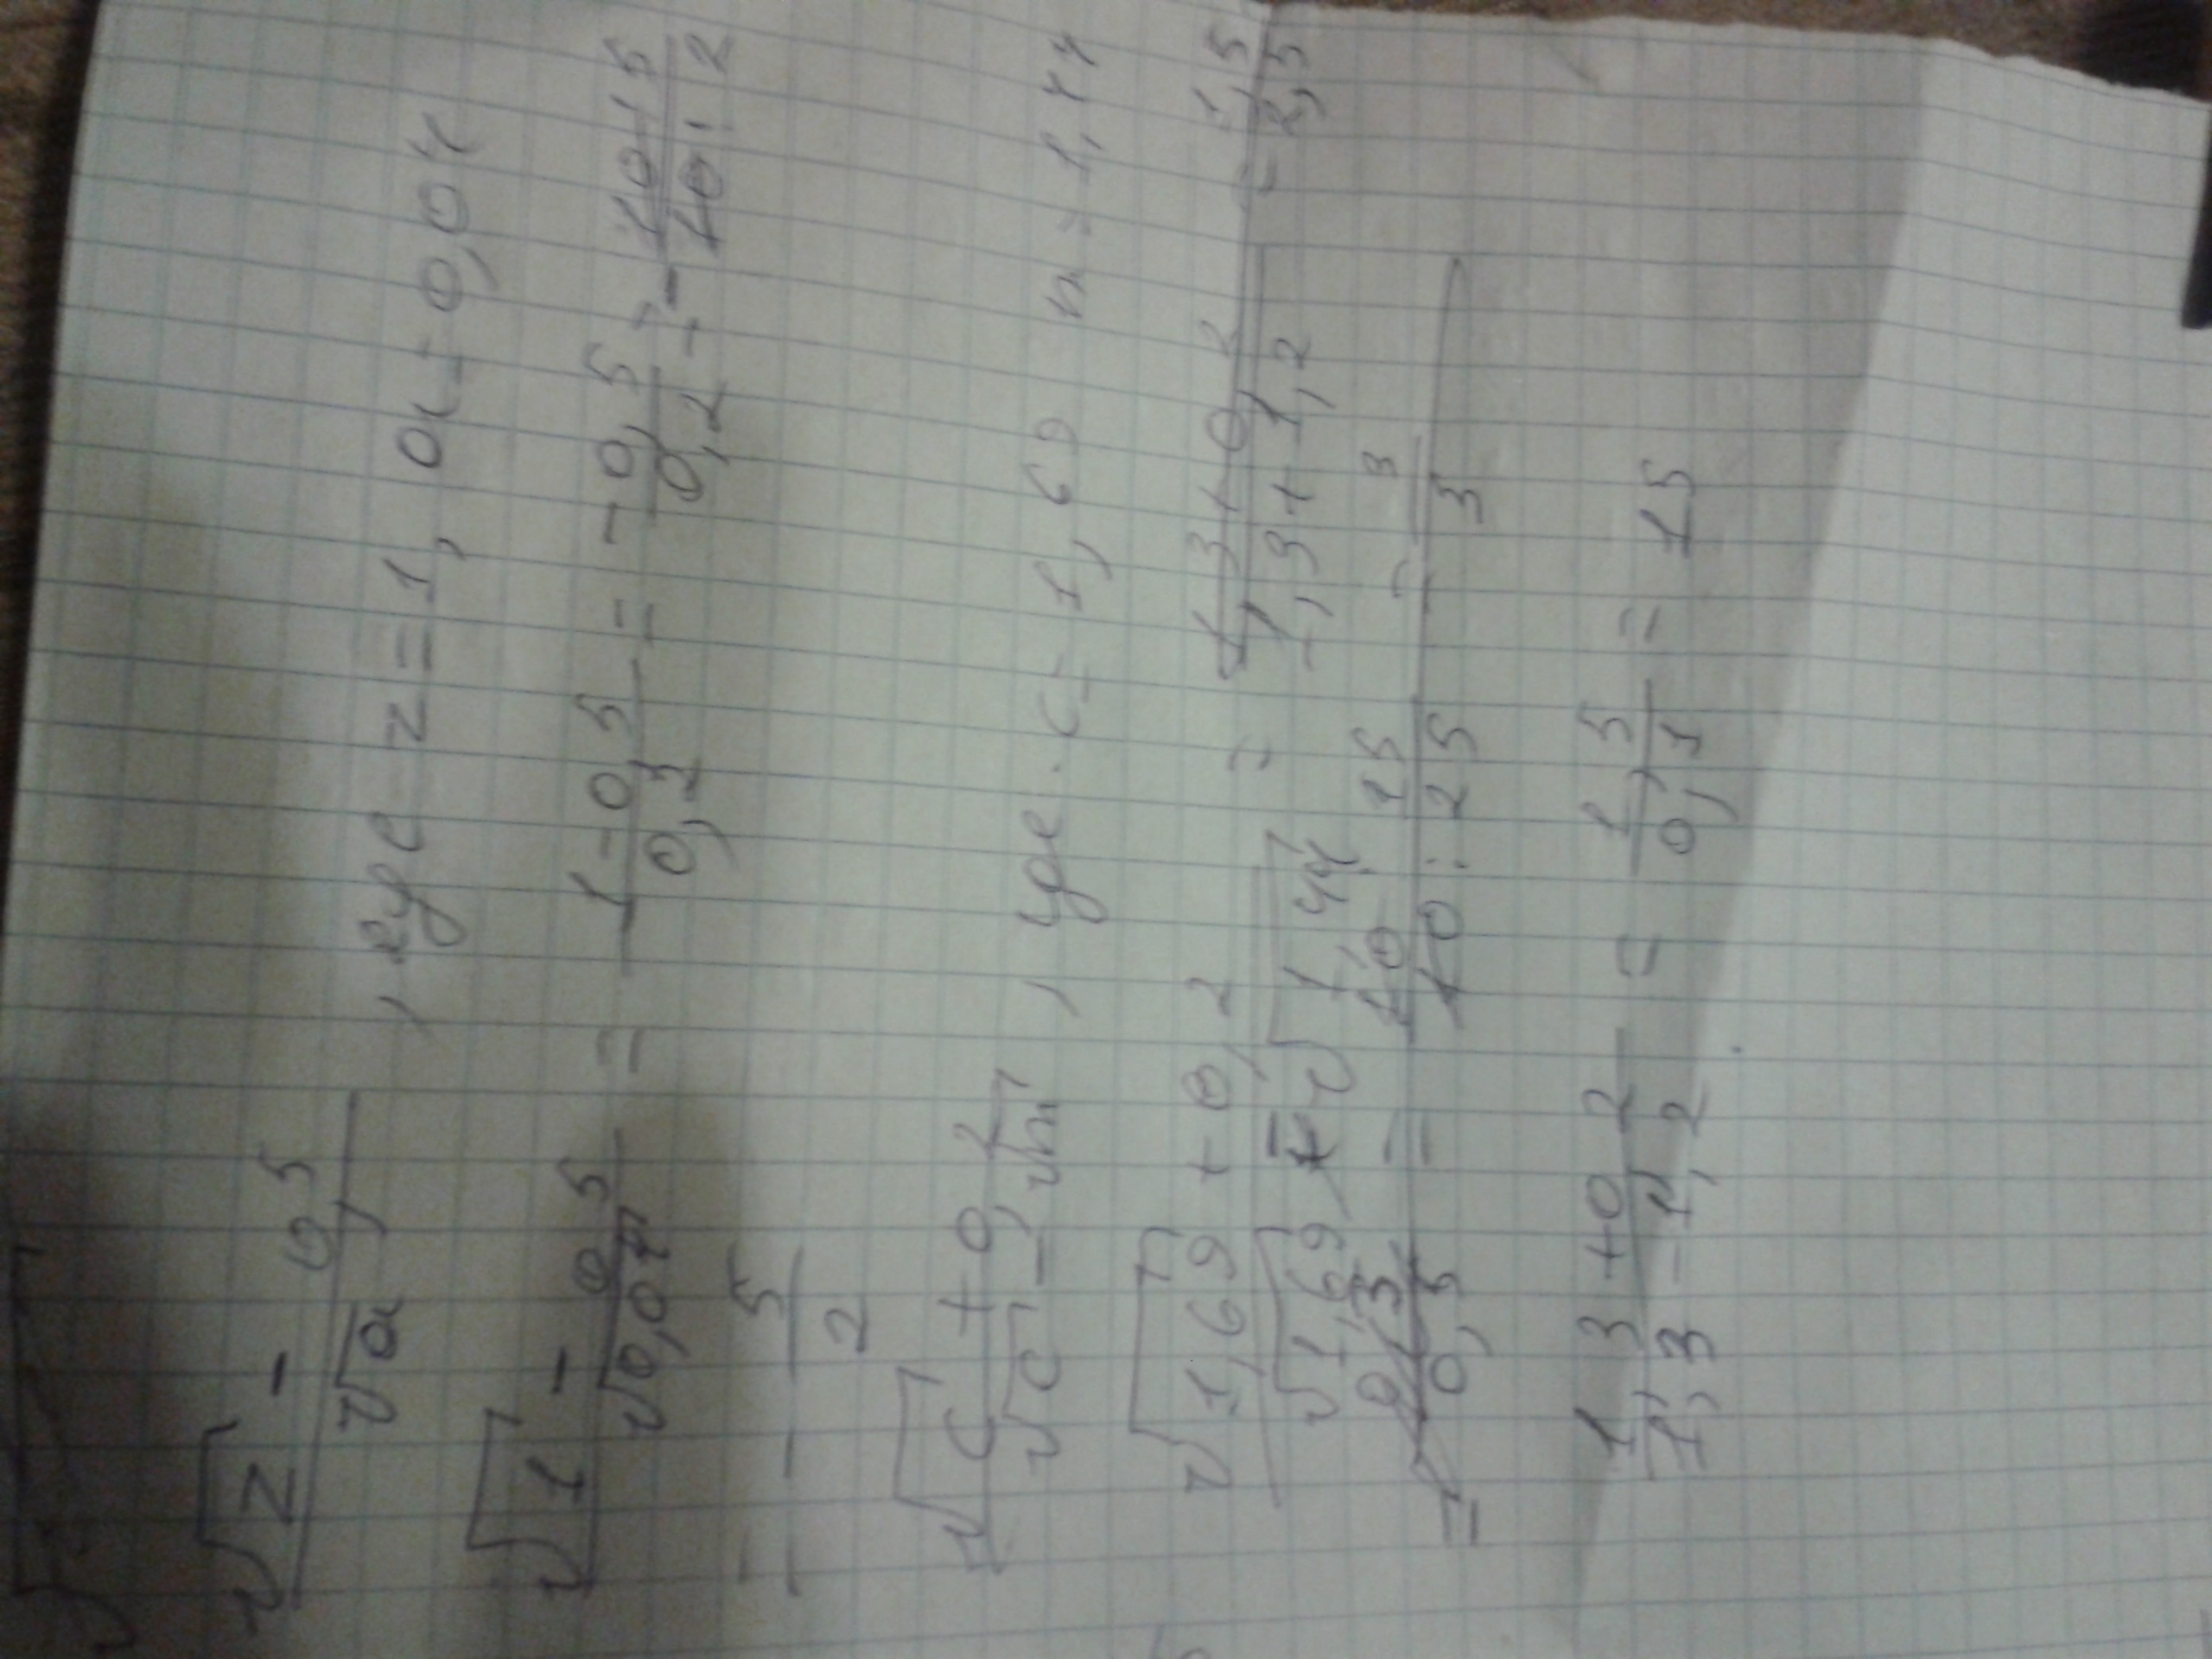 (√z - 0,5)/√a , где z=1, a=0,04
(√1 - 0,5)/√0,04 = (1-0,5)/0,2 = -0,5/0,2 = -(10·5)/(10·2)
= -5/2
(√c + 0,2)/(√c - √n) , где c=1,69 n=1,44
(√1,69 + 0,2)/(√1,69 - √1,44) = (1,3+0,2)/(1,3+1,2) = 1,5/2,5
= 0,3/0,5 = (10·15)/(10:25) = 3/3
(1,3+0,2)/(1,3-1,2) = 1,5/0,1 = 15